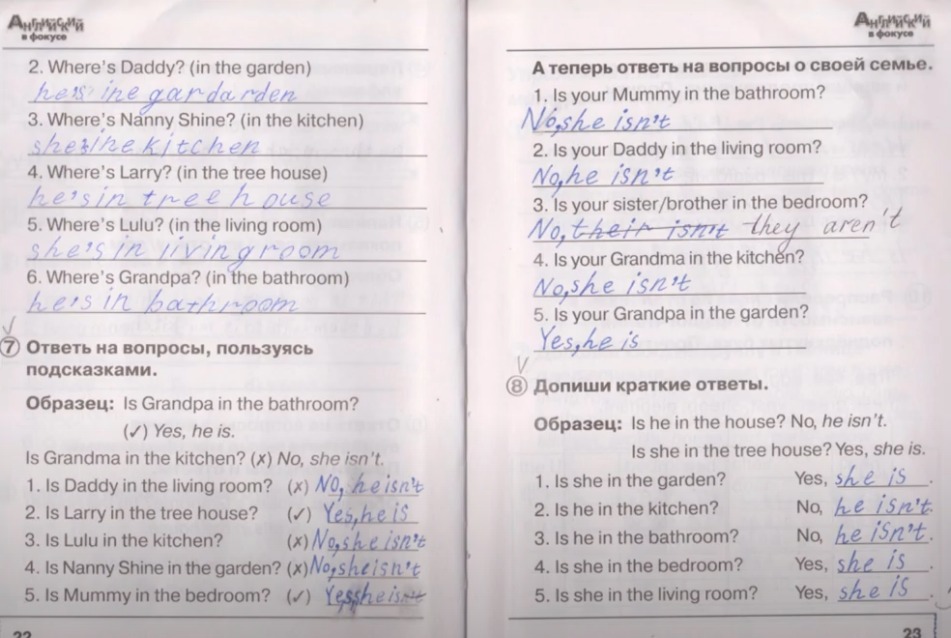 Английский
в фокусе
2. Where's Daddy? (in the garden)
he's ine gardarden
3. Where's Nanny Shine? (in the kitchen)
she's ine kitchen
4. Where's Larry? (in the tree house)
he's in tree house
5. Where's Lulu? (in the living room)
she's in living room
6. Where's Grandpa? (in the bathroom)
he's in bathroom
7 Ответь на вопросы, пользуясь
подсказками.
Образец: Is Grandpa in the bathroom?
(✓) Yes, he is.
Is Grandma in the kitchen? (x) No, she isn't.
1. Is Daddy in the living room? (x) NO, he isn't
2. Is Larry in the tree house? (✓) Yes, he is
3. Is Lulu in the kitchen? (x) No, she isn't
4. Is Nanny Shine in the garden? (x) No, she isn't
5. Is Mummy in the bedroom? (✓) Yes, she isn't
22
Английский
в фокусе
А теперь ответь на вопросы о своей семье.
1. Is your Mummy in the bathroom?
No, she isn't
2. Is your Daddy in the living room?
No, he isn't
3. Is your sister/brother in the bedroom?
No, their isn't they aren't
4. Is your Grandma in the kitchen?
No, she isn't
5. Is your Grandpa in the garden?
Yes, he is
8 Допиши краткие ответы.
Образец: Is he in the house? No, he isn't.
Is she in the tree house? Yes, she is.
1. Is she in the garden? Yes, she is.
2. Is he in the kitchen? No, he isn't.
3. Is he in the bathroom? No, he isn't.
4. Is she in the bedroom? Yes, she is.
5. Is she in the living room? Yes, she is.
23